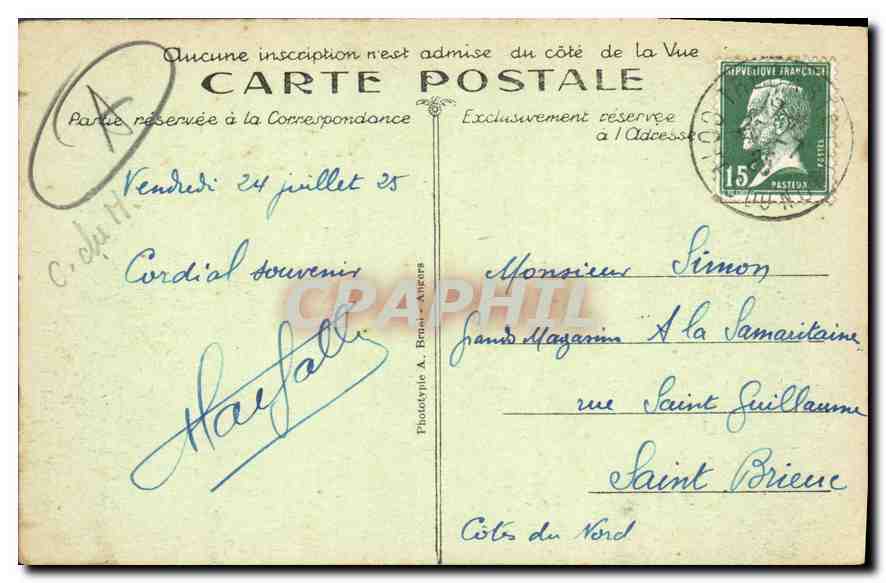 Aucune inscription n'est admise du côté de la Vue
CARTE POSTALE
Partie réservée à la Correspondance
Exclusivement réservée
à l'Adresse
RÉPUBLIQUE FRANÇAISE
15c
POSTES
PASTEUR
A
C. du N.
Vendredi 24 juillet 25
Cordial souvenir
Phototypie A. Bruel - Angers
CPAPHIL
Monsieur Simon
Grands Magasins A la Samaritaine
rue Saint Guillaume
Saint Brieuc
Côtes du Nord